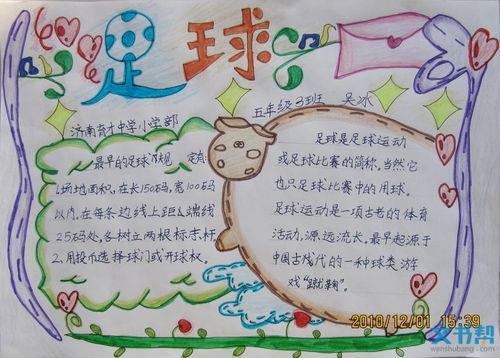 足球
济南育才中学小学部
五年级3班 吴冰
最早的足球规 定有:
1.场地面积,在长150码,宽100码
以内,在每条边线上距离端线
25码处,各树立两根标志杆
2.用投币选择球门或开球权。
足球是足球运动
或足球比赛的简称。当然它
也只足球比赛中的用球。
足球运动是一项古老的体育
活动,源远流长。最早起源于
中国古代的一种球类游
戏“蹴鞠”。
2018/12/01 15:39
文书帮
wenshubang.com